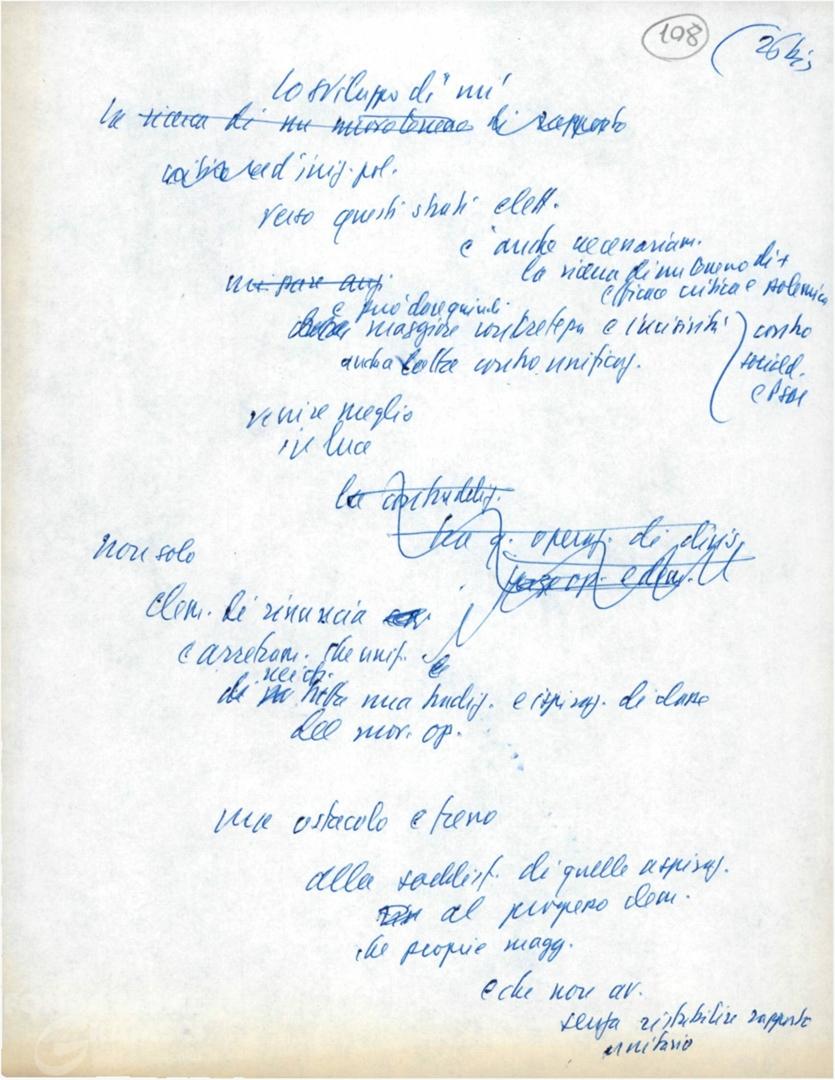 108 (26 bis
Lo sviluppo di un
la ricerca di un nuovo terreno di rapporto
ed iniz. pol.
verso questi strati elett.
è anche necessariam.
la ricerca di un terreno di +
efficace critica e polemica
mi pare anz.
e può dare quindi
maggiore concretezza e incisività
contro
anche lotta contro unificaz.
sociald.
e PSDI
venire meglio
in luce
la contraddiz.
tra q. operaz. di divis.
non solo
elem. di rinuncia
e arretram. che unif. è
di tutta una tradiz. e ispiraz. di classe
del mov. op.
ma ostacolo e freno
alla soddisf. di quelle aspiraz.
al progresso dem.
che proprie magg.
e che non av.
senza ristabilire rapporto
unitario